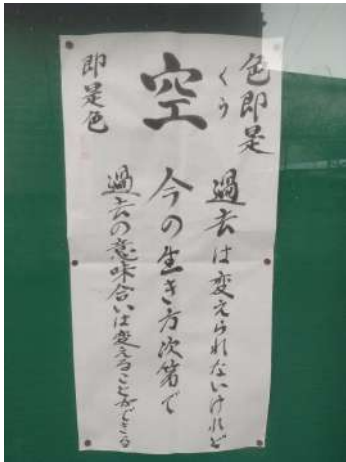 色即是
くう
空
即是色
過去は変えられないけれど
今の生き方次第で
過去の意味合いは変えることができる